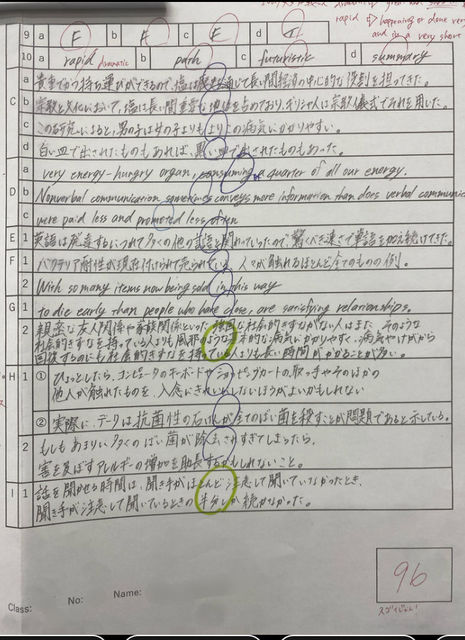 9 a F b F c F d T
10 a rapid dramatic b path c futuristic d summary
C a 貴重でかつ持ち運びができるので、塩は歴史を通じて長い間経済の中心的な役割を担ってきた。
b 宗教と文化において、塩は長い間重要な地位を占めており、ギリシャ人は宗教儀式でそれを用いた。
c この研究によると、男の子は女の子よりもよりこの病気にかかりやすい。
d 白い皿で出されたものもあれば、黒い皿で出されたものもあった。
D a very energy-hungry organ, consuming a quarter of all our energy.
b Nonverbal communication conveys more information than does verbal
c were paid less and promoted less often
E 1 英語は発達するにつれて多くの他の言語と関わっていったので、驚くべき速さで単語を加え続けてきた。
F 1 バクテリア耐性が現在付けられて売られている、人々が触れるほとんど全てのものの例。
2 With so many items now being sold in this way
G 1 to die early than people who have close, are satisfying relationships.
2 親密な友人関係や家族関係といった強固な社会的きずながない人はまた、そのような
社会的きずなを持っている人よりも風邪のような一般的な病気にかかりやすく、病気やけがから
回復するのにも社会的きずなを持っている人よりも長い時間がかかることが多い。
H 1 ① ひょっとしたら、コンピュータのキーボードやショッピングカートの取っ手やそのほかの
他人が触れたものを、入念にきれいにしないほうがよいかもしれない
② 実際に、データは抗菌性の石けんが全てのばい菌を殺すことが問題であると示している。
2 もしもあまりに多くのばい菌が除去されすぎてしまったら、
害を及ぼすアレルギーの増加を助長するかもしれないこと。
I 1 話を聞かせる時間は、聞き手がほとんど注意して聞いていなかったとき、
聞き手が注意して聞いているときの半分しか続かなかった。
96
Class: No: Name: